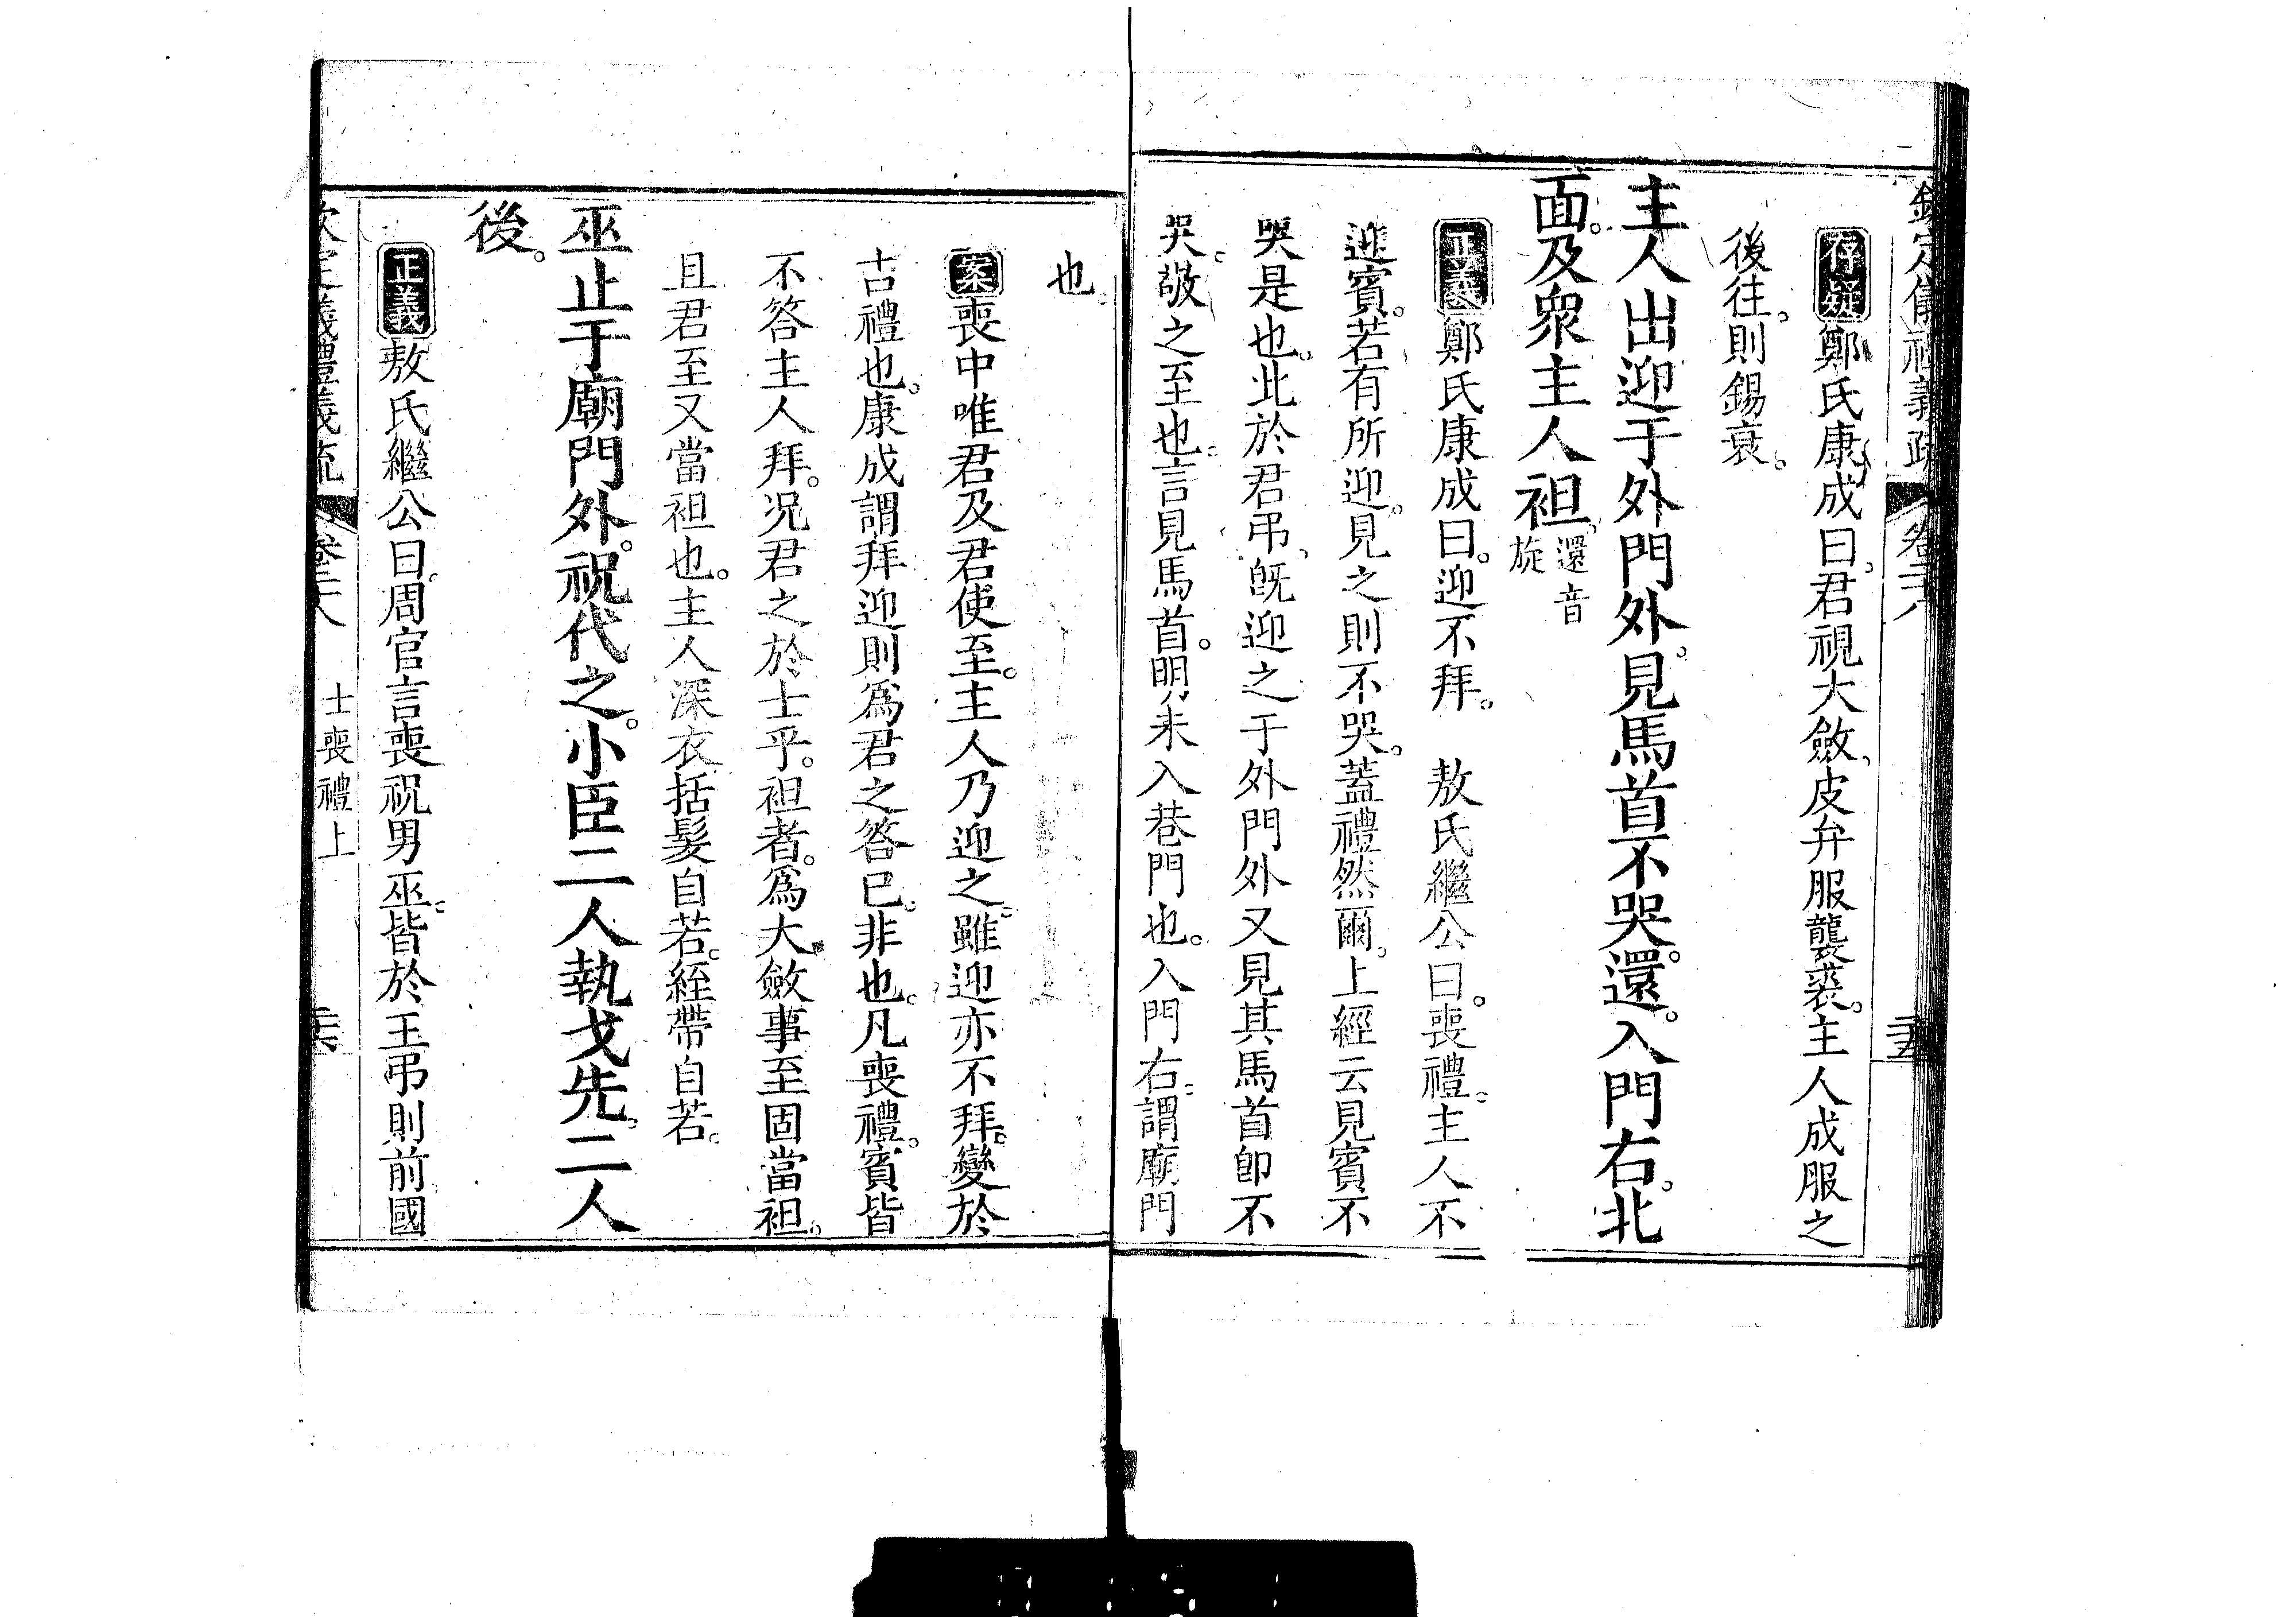 欽定儀禮義疏 卷二八 二十五
存疑鄭氏康成曰。君視大斂、皮弁服襲裘。主人成服之
後往。則錫衰。
主人出迎于外門外。見馬首不哭。還。入門右。北
面。及衆主人袒。還音旋
正義鄭氏康成曰。迎不拜。 敖氏繼公曰。喪禮。主人不
迎賓。若有所迎。見之則不哭。蓋禮然爾。上經云見賓不
哭是也。此於君弔、旣迎之于外門外又見其馬首卽不
哭。敬之至也。言見馬首。明未入巷門也。入門右。謂廟門
也
案喪中唯君及君使至。主人乃迎之。雖迎亦不拜。變於
古禮也。康成謂拜迎則爲君之答已。非也。凡喪禮。賓皆
不答主人拜。况君之於士乎。袒者。爲大斂事至固當袒。
且君至又當袒也。主人深衣括髮自若。絰帶自若。
巫止于廟門外。祝代之。小臣二人執戈先。二人
後。
正義敖氏繼公曰。周官言喪祝男巫。皆於王弔則前國
欽定儀禮義疏 卷二八 士喪禮上 二十六